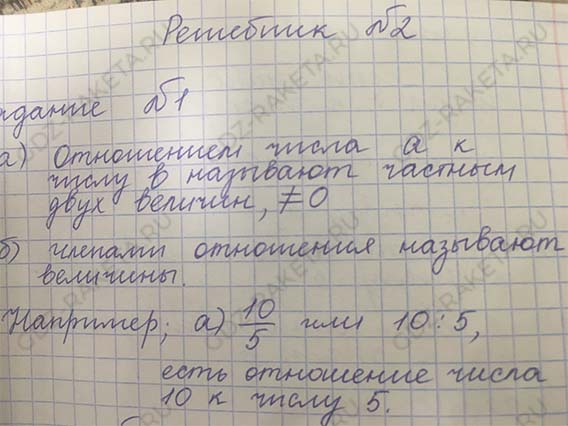 Решебник №2
адание №1
а) Отношением числа а к
числу в называют частным
двух величин, ≠0
б) членами отношения называют
величины.
Например; а) 10/5 или 10:5,
есть отношение числа
10 к числу 5.
GDZ-RAKETA.RU